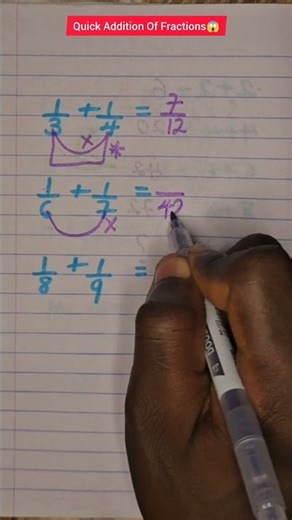 Quick Addition Of Fractions😱
1/3 + 1/4 = 7/12
x *
1/6 + 1/7 = /42
x
1/8 + 1/9 =